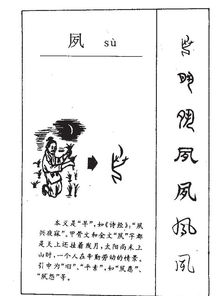 夙 sù
本义是“早”,如《诗经》:“夙
兴夜寐”。甲骨文和金文“夙”字都
是天上还挂着残月,太阳尚未上
山时,一个人在辛勤劳动的情景。
引中为“旧”、“平素”,如“夙愿”、
“夙怨”等。
夙
夙